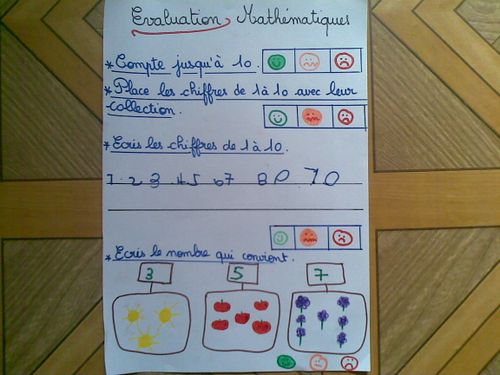 Evaluation Mathématiques
* Compte jusqu'à 10.
* Place les chiffres de 1 à 10 avec leur
collection.
* Ecris les chiffres de 1 à 10.
1 2 3 4 5 6 7 8 9 10
* Ecris le nombre qui convient.
3 5 7